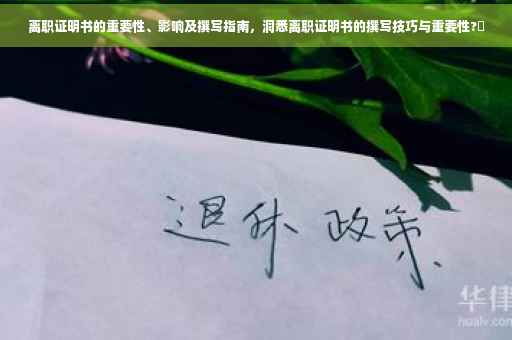 离职证明书的重要性、影响及撰写指南，洞悉离职证明书的撰写技巧与重要性?
退休 政策
华律
hualv.